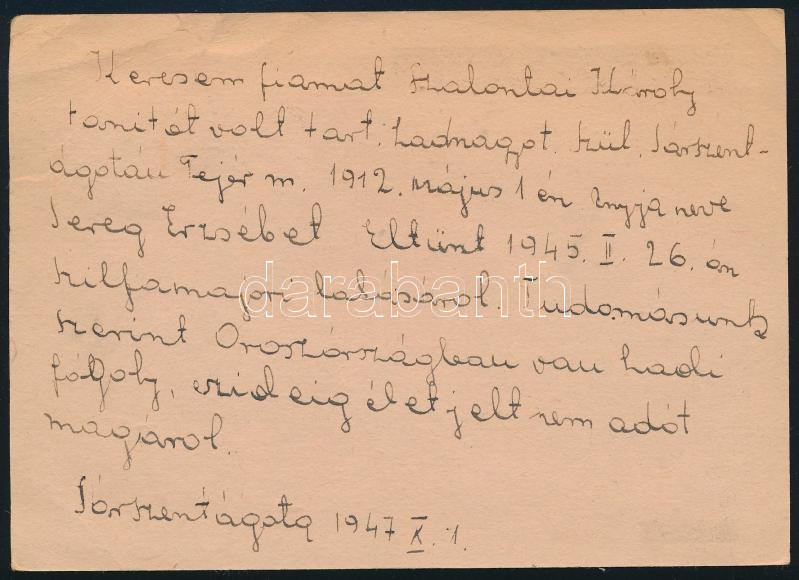 Keresem fiamat Szalontai Károly
tanitót volt tart. hadnagyot. Szül. Sárszent-
ágotán Fejér m. 1912. május 1 én Anyja neve
Sereg Erzsébet Eltünt 1945. II. 26. án
szilfamajori lakásárol. Tudomásunk
szerint Oroszországban van hadi
fogoly, ezideig életjelt nem adót
magárol.
Sárszentágota 1947 X. 1.
darabanth